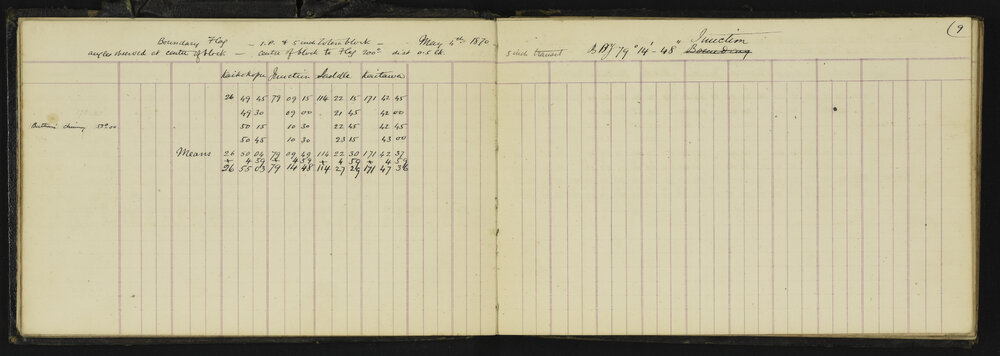 (9
Boundary Flag - I.P. & 5 inch block - May 4th 1870
angles observed at centre of block - centre of block to Flag 200° dist 0.5 lk
5 inch transit S By 79° 14' - 48" Junction
Boundary
Kaikokopu Junction Saddle Kaitawa
26 49 45 79 09 15 114 22 15 171 42 45
49 30 09 00 21 45 42 00
chimney 50 15 10 30 22 45 42 45
50 45 10 30 23 15 43 00
Means 26 50 04 79 09 49 114 22 30 171 42 37
+ 4 59 + 4 59 + 4 59 + 4 59
26 55 03 79 14 48 114 27 29 171 47 36